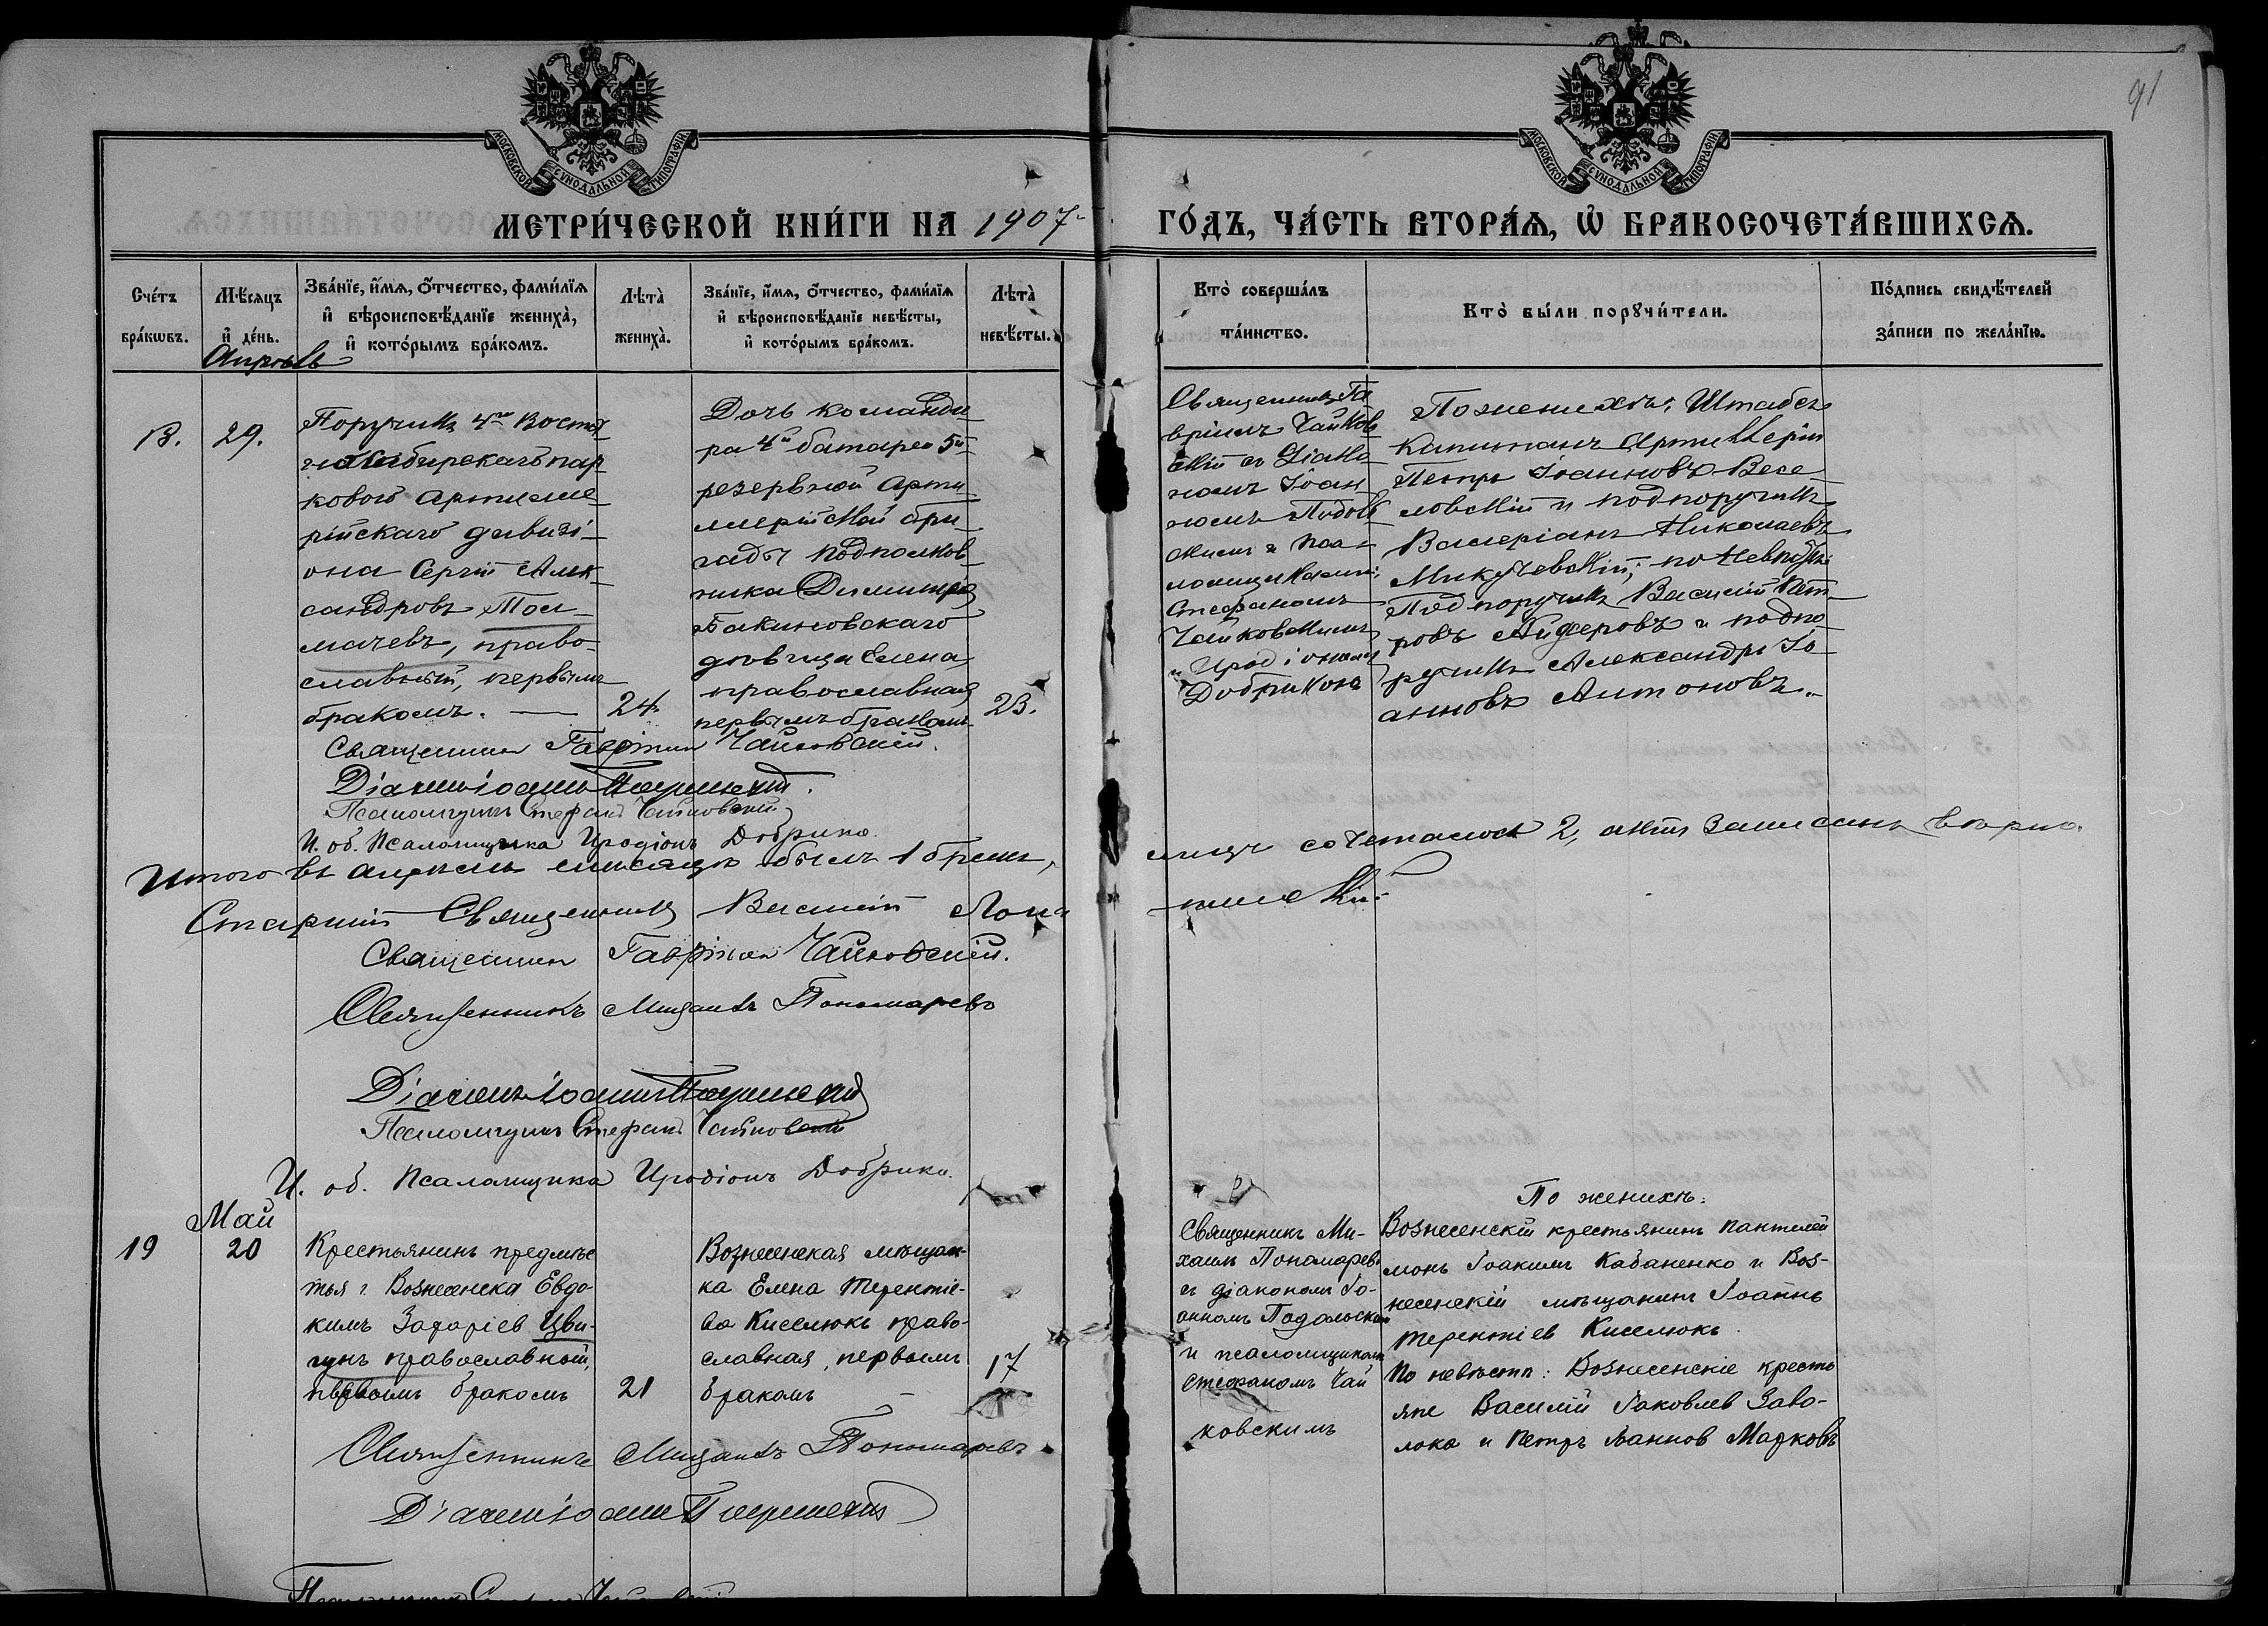 91
МОСКОВСКОЙ СѴНОДАЛЬНОЙ ТИПОГРАФІИ
МОСКОВСКОЙ СѴНОДАЛЬНОЙ ТИПОГРАФІИ
МЕТРИ́ЧЕСКОЙ КНИ́ГИ НА 1907
ГО́ДЪ, ЧА́СТЬ ВТОРА́Ѧ, Ѽ БРАКОСОЧЕТА́ВШИХСѦ.
Сче́тъ
бра́кѡвъ.
Мѣ́сяцъ
и҆ де́нь.
Зва́нїе, и҆́мѧ, ѻ҆́тчество, фами́лїѧ
и҆ вѣроисповѣ́данїе жениха̀,
и҆ кото́рымъ бра́комъ.
Лѣта̀
жениха̀.
Зва́нїе, и҆́мѧ, ѻ҆́тчество, фами́лїѧ
и҆ вѣроисповѣ́данїе невѣ́сты,
и҆ кото́рымъ бра́комъ.
Лѣта̀
невѣ́сты.
Кто̀ соверша́лъ
та́инство.
Кто̀ бы́ли порꙋчи́тели.
По́дпись свидѣ́телей
за́писи по жела́нїю.
Апрѣль
29.
Поручикъ 4го Восточ
но Сибирскаго пар
коваго Артилле
рійскаго дивизі-
она Сергій Алек
сандровъ Тол-
мачевъ, право-
славный, первымъ
бракомъ. —
24.
Дочь команди
ра 4й батареи 5й
резервной Арти
ллерійской бри
гады подполков
ника Димитрія
Бакиновскаго
дѣвица Елена
православная
первымъ бракомъ
23.
Священникъ Га
вріилъ Чайков
скій съ Діако
номъ Іоан
номъ Подоль
скимъ и Пса
ломщиками:
Стефаномъ
Чайковскимъ
и Иродіономъ
Добрикою
По женихѣ: Штабсъ
Капитанъ Артиллеріи
Петръ Іоанновъ Весе
ловскій и подпоручикъ
Валеріанъ Николаевъ
Микульевскій; по невѣстѣ:
Подпоручикъ Василій Пет
ровъ и подпо
ручикъ Александръ Іо
анновъ Антоновъ.
Священникъ Гавріилъ Чайковскій.
Діаконъ Іоаннъ Подольскій.
Псаломщикъ Стефанъ Чайковскій
И. об. Псаломщика Иродіонъ Добрика.
Итого въ апрѣлѣ мѣсяцѣ былъ 1 бракъ,
лицъ сочеталось 2, акты записаны вѣрно.
Старшій Священникъ Василій
Священникъ Гавріилъ Чайковскій.
Священникъ Михаилъ Пономаревъ
Діаконъ Іоаннъ Подольскій
Псаломщикъ Стефанъ Чайковскій
И. об. Псаломщика Иродіонъ Добрика.
Май
19
20
Крестьянинъ предмѣс
тья г. Вознесенска Евдо
кимъ Захаріев Цви-
гунъ православный,
первымъ бракомъ
21
Вознесенская мѣщан-
ка Елена Терентіе-
ва Киселюкъ право-
славная, первымъ
бракомъ —
17
Священникъ Ми-
хаилъ Пономаревъ
съ діакономъ Іо-
анномъ Подольским
и псаломщикомъ
Стефаномъ Чай
ковскимъ
По женихѣ:
Вознесенскій крестьянинъ Пантелей
монъ Іоакимъ Кабаненко и Воз-
несенскій мѣщанинъ Іоаннъ
Терентіев Киселюкъ.
По невѣстѣ: Вознесенскіе кресть
яне Василій Іаковлев Заво-
лока и Петръ Іоаннов Марковъ
Священникъ Михаилъ Пономаревъ
Діаконъ Іоаннъ Подольскій